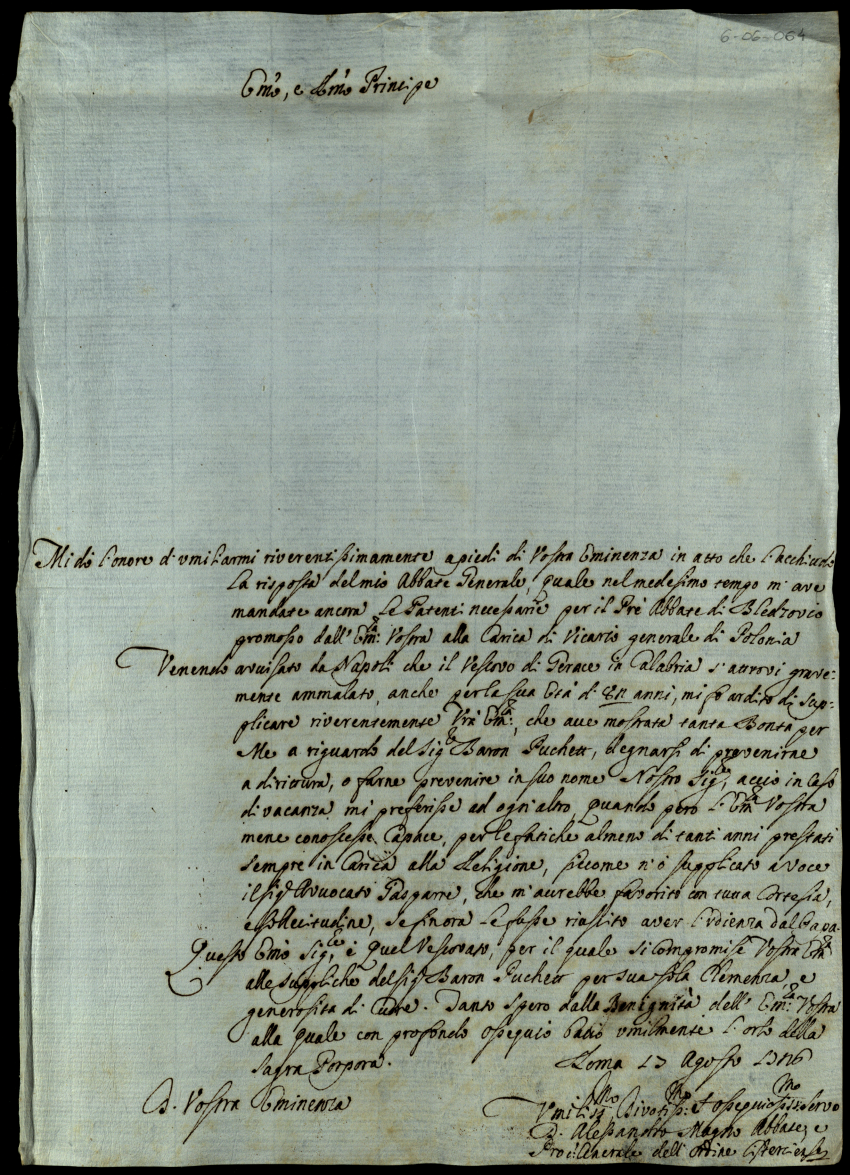 6-06-064
Emo, e Rmo Principe
Mi dò l'onore d'umiliarmi riverentissimamente a piedi di Vostra Eminenza in atto che l'acchiudo
la risposta del mio Abbate Generale, quale nel medesimo tempo m'ave
mandate ancora le Patenti necessarie per il Pre Abbate di Bledzovio
promosso dall' Emza Vostra alla Carica di Vicario generale di Polonia
Venendo avvisato da Napoli che il Vescovo di Gerace in Calabria s'attrovi grave-
mente ammalato, anche per la sua Età di anni, mi fò ardito di sup-
plicare riverentemente Vra Emza, che ave mostrata tanta Bontà per
Me a riguardo del Sigre Baron Puchett, degnarsi di prevenirne
a dirittura, o farne prevenire in suo nome Nostro Sigre, acciò in caso
di vacanza mi preferisse ad ogn'altro, quando però l'Emza Vostra
mene conoscesse Capace, per le fatiche almeno di tanti anni prestati
sempre in Carica alla Religione, siccome n'ò supplicato a voce
il Sigr Avvocato Gasparre, che m'avrebbe favorito con tutta Cortesia,
e sollecitudine, se finora le fusse riuscito aver l'udienza dal Papa.
Questo Emo Sigre, è quel Vescovato, per il quale si compromise Vostra Emza
alle suppliche del Sigr Baron Puchett per sua sola Clemenza, e
generosità di Cuore. Tanto spero dalla Benignità dell' Emza Vostra
alla quale con profondo ossequio bacio umilmente l'orlo della
Sagra Porpora. Roma 17 Agosto
D. Vostra Eminenza
Umilissmo Divotissmo et ossequiosissmo Servo
D. Alessandro Magno Abbate, e
Proc: Generale dell' Ordine Cisterciense